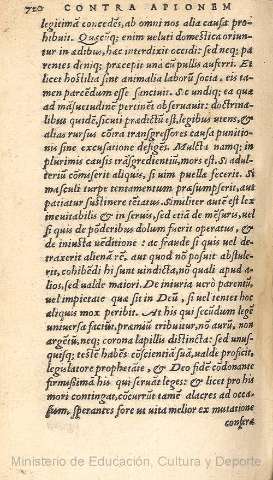 720 CONTRA APIONEM
legitimā concedēs, ab omni nos alia causa pro-
hibuit. Quęcūq; enim veluti domestica oriun-
tur in ædibus, hæc interdixit occidi: sed neq; pa-
rentes deniq; præcepit una cū pullis auferri. Et
licet hostilia sint animalia laborū socia, eis ta-
men parcēdum esse sanciuit. Sic undiq; ea quæ
ad māsuetudinē pertinēt obseruauit: doctrina-
libus quidē, sicuti prædictū est, legibus utens, &
alias rursus cōtra transgressores causa punitio-
nis sine excusatione desigēs. Mulcta namq; in
plurimis causis trāsgredientiū, mors est. Si adul-
teriū cōmiserit aliquis, si uim puellæ fecerit. Si
masculi turpe tentamentum præsumpserit, aut
patiatur sustinere tētatus. Similiter autē est lex
ineuitabilis & in seruis, sed etiā de mēsuris, uel
si quis de pōderibus dolum fuerit operatus, &
de iniusta uēditione: ac fraude si quis uel de-
traxerit alienā rē, aut quod nō posuit abstule-
rit, cohibēdi hi sunt uindicta, nō quali apud a-
lios, sed ualde maiori. De iniuria uerò parentū,
uel impietate quæ sit in Deū, si uel tentet hoc
aliquis mox peribit. At his qui secūdum legē
uniuersa faciūt, præmiū tribuitur, nō aurū, non
argētū, neq; corona lapillis distincta: sed unus-
quisq; testē habēs cōscientiā suā, ualde proficit,
legislatore prophetāte, & Deo fidē cōdonante
firmissimā his qui seruāt leges: & licet pro his
mori contingat, cōcurrūt tamē alacres ad occa-
sum, sperantes fore ut uita melior ex mutatione
conferæ
Ministerio de Educación, Cultura y Deporte